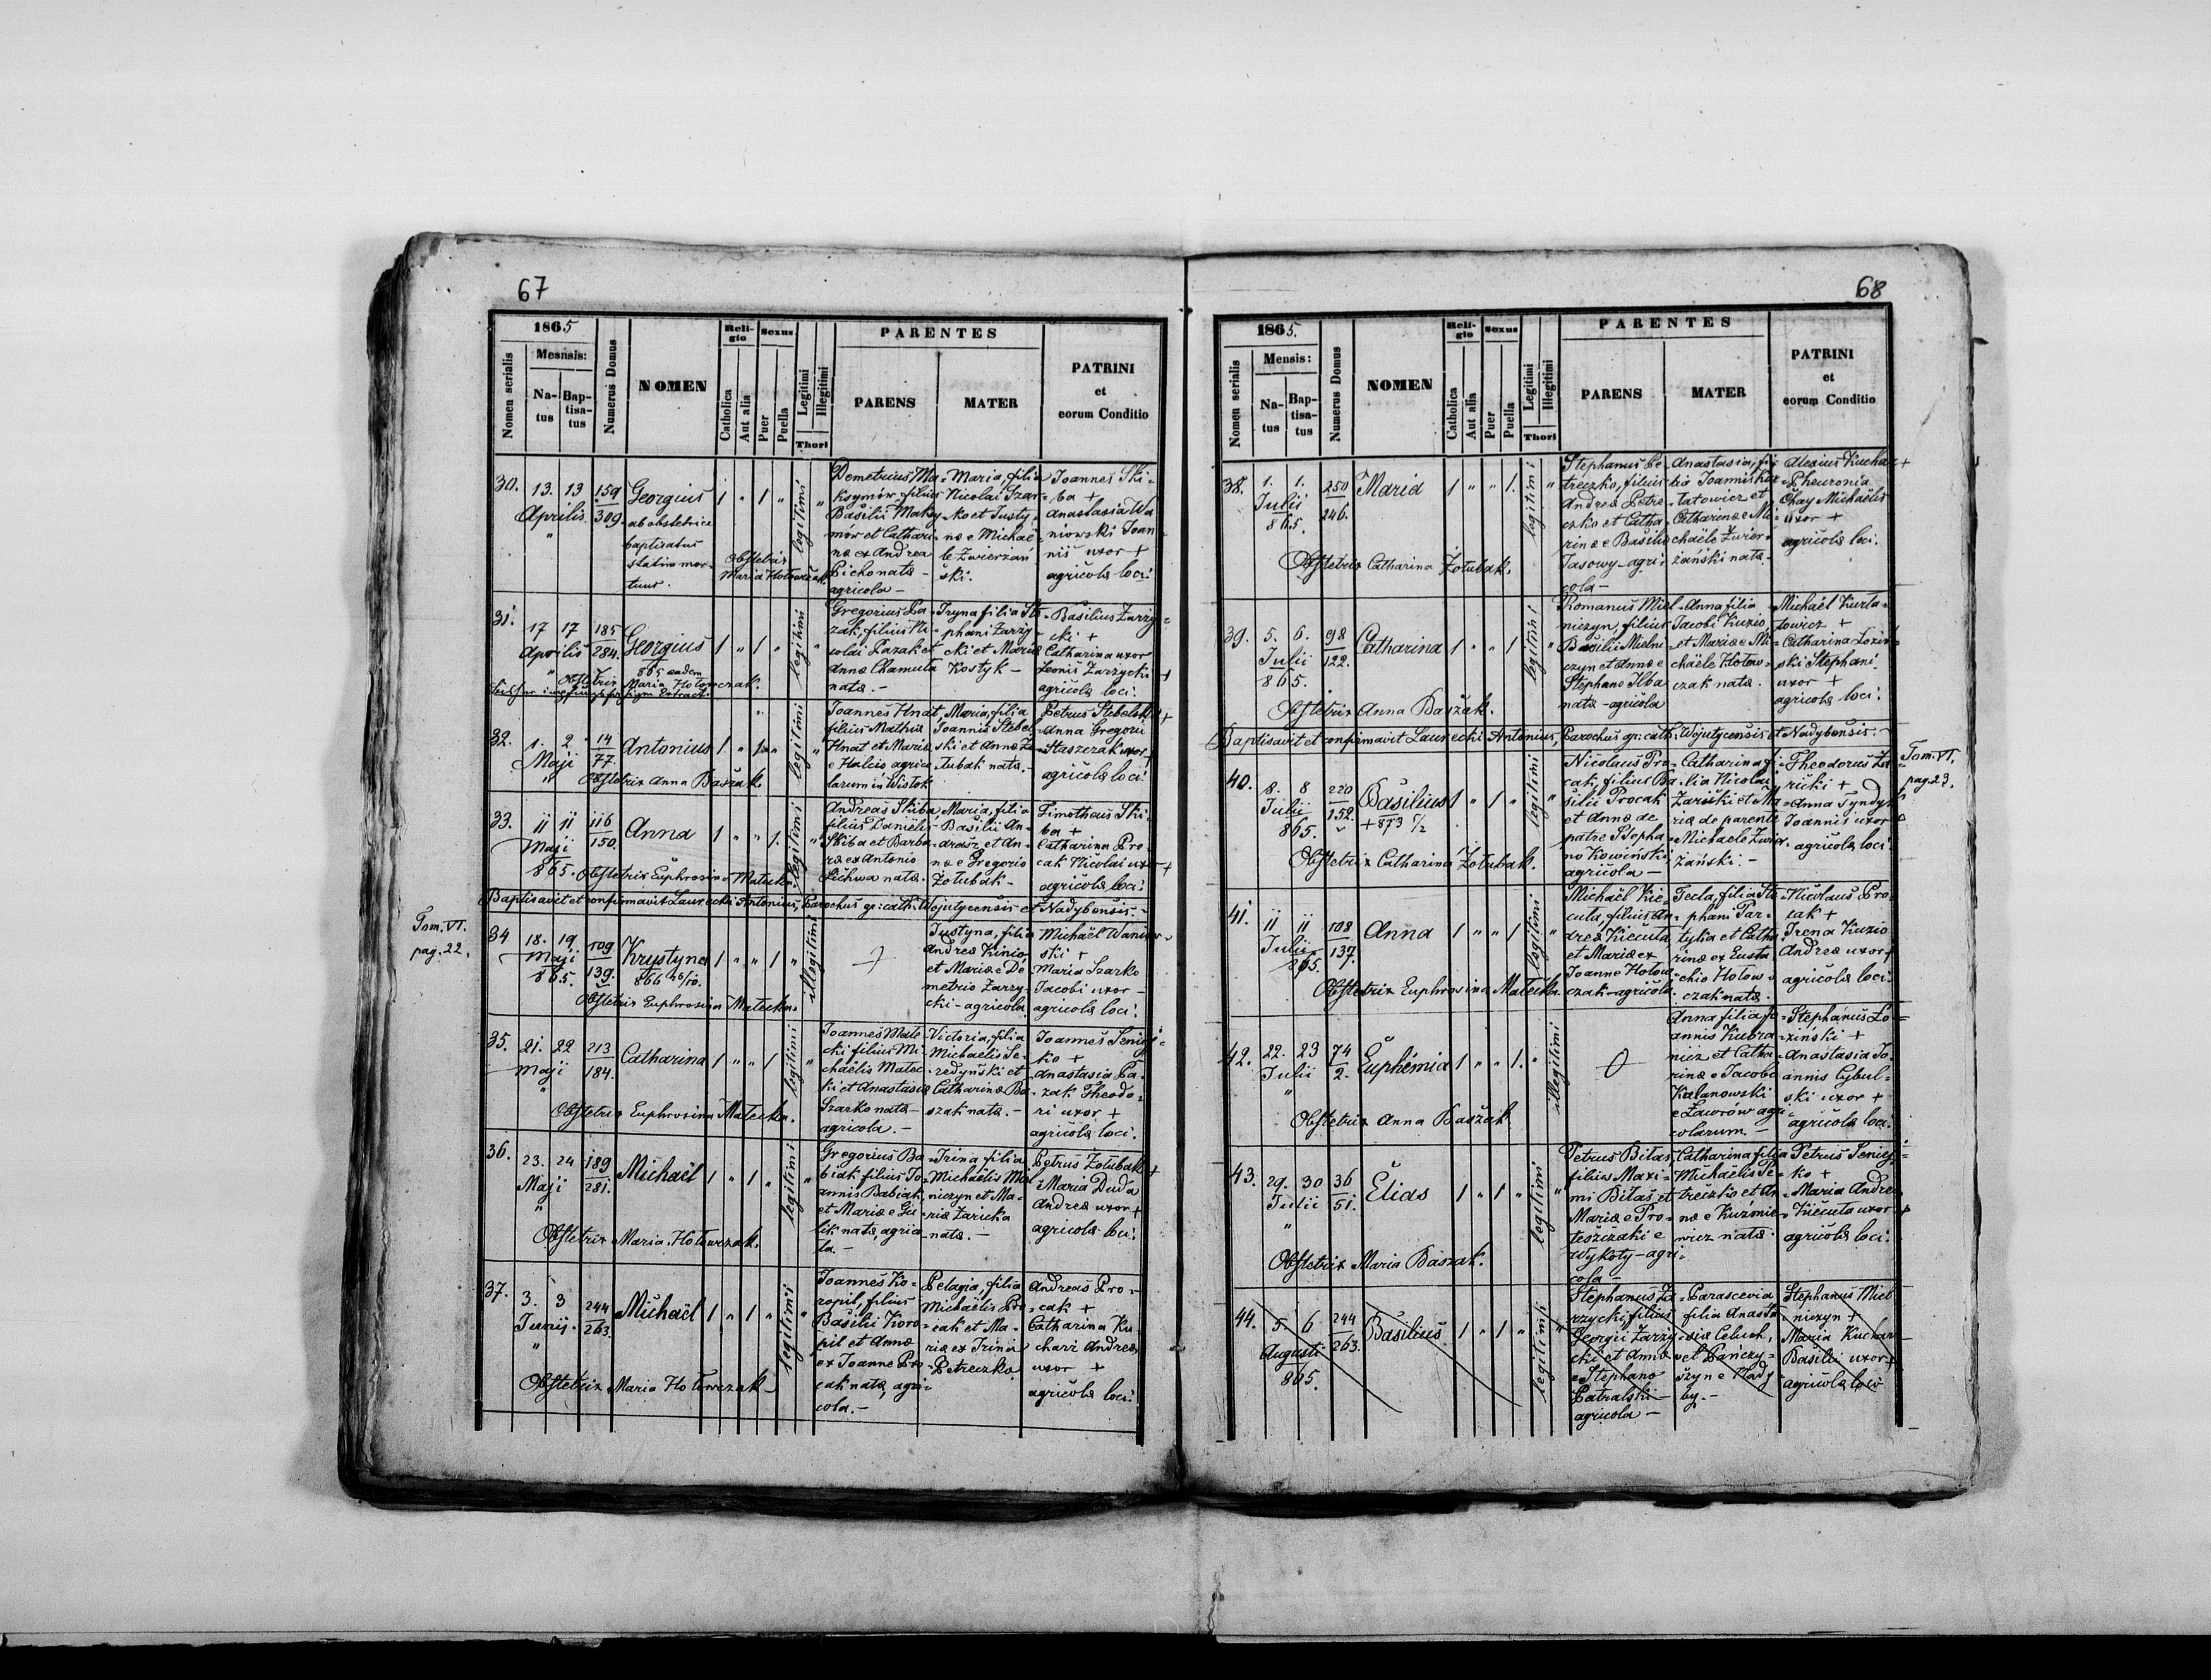 67
1865
Nomen serialis
Mesnsis:
Natus
Baptisatus
Numerus Domus
NOMEN
Religio
Catholica
Aut alia
Sexus
Puer
Puella
Legitimi
Illegitimi
Thori
PARENTES
PARENS
MATER
PATRINI
et
eorum Conditio
30.
13. 13
Aprilis
"
159
309.
Georgius
ab obstetrice
baptisatus
statim mor-
tuus.
1 " 1 "
legitimi
"
Obstetrix
Maria Hołowczak
Demetrius Ma-
ksymów, filius
Basilii Maksy-
mów et Cathari-
næ ex Andrea
Picho nata -
agricola -
Maria, filia
Nicolai Szar-
ko et Justy-
næ e Michaë-
le Zwierzań
ski.
Joannes Ski-
ba +
Anastasia Wa
niowski Joan
nis uxor +
agricolæ loci.
31.
17 17
Aprilis
"
185
284.
Georgius
865 eadem
1 " 1 "
legitimi
"
Obstetrix Maria Hołowczak.
Gregorius Pa-
zak, filius Ni-
colai Pazak et
Annæ Chamuła
nata. -
Iryna filia Ste-
phani Zarzy-
cki et Mariæ
Kostyk -
Basilius Zarzy-
cki +
Catharina uxor
Leonis Zarzycki +
agricolæ loci.
32.
1. 2
Maji
"
14
77.
Antonius
1 " 1 "
legitimi
"
Obstetrix Anna Baszak
Joannes Hnat,
filius Mathiæ
Hnat et Mariæ
e Halcio agrico-
larum in Wistok
Maria, filia
Joannis Stebel-
ski et Annæ Żo-
łubak nata. -
Petrus Stebelski +
Anna Gregorii
Staszczak uxor +
agricolæ loci.
33.
11 11
Maji
865.
116
150.
Anna
1 " " 1.
legitimi
"
Obstetrix Euphrosina Małecka.
Andreas Skiba
filius Danielis
Skiba et Barba-
ræ ex Antonio
Lichwa nata.
Maria, filia
Basilii An-
drasz et An-
næ e Gregorio
Żołubak -
Timotheus Ski-
ba +
Catharina Pro-
cak Nicolai uxor +
agricolæ loci.
Baptisavit et confirmavit Laurecki Antonius, Parochus gr: cath: Wojutycensis et Nadybensis. -
Tom. VI.
pag. 22.
34
18. 19.
Maji
865.
109
139.
Krystyna
866 26/10.
1 " " 1 "
illegitimi
Obstetrix Euphrosina Małecka.
Justyna, filia
Andreæ Kinio
et Mariæ e De-
metrio Zarzy-
cki - agricola
Michaël Waniow-
ski +
Maria Szarko
Jacobi uxor -
agricolæ loci.
35.
21. 22
Maji
"
213
184.
Catharina
1 " " 1
legitimi
"
Obstetrix Euphrosina Małecka.
Joannes Małe-
cki filius Mi-
chaëlis Małec-
ki et Anastasiæ
Szarko nata -
agricola. -
Victoria, filia
Michaëlis Se-
redyński et
Catharinæ Ba-
szak nata. -
Joannes Senię-
ko +
Anastasia Pa-
zak Theodo-
ri uxor +
agricolæ loci.
36.
23. 24
Maji
"
189
281.
Michaël
1 " 1 "
legitimi
"
Obstetrix Maria Hołowczak.
Gregorius Ba-
biak filius Jo-
annis Babiak
et Mariæ e Gu-
lik nata, agrico-
la. -
Irina filia
Michaëlis Miel-
niczyn et Ma-
riæ Zaricka
nata. -
Petrus Żołubak +
Maria Duda
Andreæ uxor +
agricolæ loci.
37.
3. 3
Junij.
"
244
263.
Michaël
1 " 1 "
legitimi
"
Obstetrix Maria Hołowczak -
Joannes Ko-
ropil, filius
Basilii Koro-
pil et Annæ
ex Joanne Pro-
cak nata, agri-
cola. -
Pelagia, filia
Michaëlis Pro-
cak et Ma-
riæ ex Irina
Petreczko.
Andreas Pro-
cak +
Catharina Ku-
charz Andreæ
uxor +
agricolæ loci.
68
1865.
Nomen serialis
Mensis:
Natus
Baptisatus
Numerus Domus
NOMEN
Religio
Catholica
Aut alia
Sexus
Puer
Puella
Legitimi
Illegitimi
Thori
PARENTES
PARENS
MATER
PATRINI
et
eorum Conditio
38.
1. 1.
Julii
865.
250
246.
Maria
1 " " 1.
legitimi
"
Obstetrix Catharina Żołubak.
Stephanus Pe-
treczko, filius
Andreæ Petre-
czko et Catha-
rinæ e Basilio
Jasowy - agri-
cola -
Anastasia, fi-
lia Joannis Kur-
łatowicz et
Catharinæ e Mi-
chaële Zwier-
żański nata -
Alexius Kuchar +
Pheuronia
Chay Michaëlis
uxor +
agricolæ loci.
39.
5. 6.
Julii
865.
98
122.
Catharina
1 " " 1
legitimi
"
Obstetrix Anna Baszak.
Romanus Miel-
niczyn, filius
Basilii Mielni-
czyn et Annæ e
Stephano Ilba
nata - agricola
Anna filia
Jacobi Kuzio,
et Mariæ e Mi-
chäele Hołow-
czak nata.
Michaël Kurła-
towicz +
Catharina Łozin-
ski Stephani
uxor +
agricolæ loci.
Baptisavit et confirmavit Laurecki Antonius, Parochus gr: cath: Wojutycensis et Nadybensis. -
Tom. VI.
pag. 23.
40.
8. 8
Julii
865.
220
152.
Basilius
+ 873 5/2
1 " 1 "
legitimi
"
Obstetrix Catharina Żołubak.
Nicolaus Pro-
cak, filius Ba-
silii Procak
et Annæ de
patre Stepha-
no Kowiński
agricola -
Catharina fi-
lia Nicolai
Zariski et Ma-
riæ de parente
Michaele Zwier-
żański. -
Theodorus Za-
ricki +
Anna Tyndyk
Joannis uxor +
agricolæ loci
41.
11 11
Julii
865.
108
137.
Anna
1 " " 1
legitimi
"
Obstetrix Euphrosina Małecka
Michaël Kie-
cuta, filius An-
dreæ Kiecuta
et Mariæ ex
Joanne Hołow-
czak - agricola
Tecla, filia Ste-
phani Par-
tyka et Catha-
rinæ ex Eusta-
chio Hołow-
czak nata.
Nicolaus Pro-
cak +
Irena Kuzio
Andreæ uxor +
agricolæ loci.
42.
22. 23
Julii
"
74
2.
Euphemia
1 " " 1. "
illegitimi
Obstetrix Anna Baszak.
Anna filia Jo-
annis Kubra-
nicz et Catha-
rinæ e Jacobo
Kalanowski
e Zaworów agri-
colarum. -
Stephanus Ło-
ziński +
Anastasia Jo-
annis Cybul-
ski uxor +
agricolæ loci.
43.
29. 30
Julii
"
36
51.
Elias
1 " 1 "
legitimi
"
Obstetrix Maria Baszak.
Petrus Bitas
filius Maxi-
mi Bitaś et
Mariæ e Pro-
teszczaki e
Wykoty - agri-
cola -
Catharina filia
Michaëlis Pe-
treczko et An-
næ e Kuźmie-
wicz nata.
Petrus Senię-
ko +
Maria Andreæ
Kiecuta uxor +
agricolæ loci.
44.
5. 6.
Augusti
865.
244
263.
Basilius
1 " 1 "
legitimi
"
Stephanus Za-
rzycki, filius
Georgii Zarzy-
cki et Annæ
e Stephano
Patralski -
agricola -
Parascevia
filia Anasta-
siæ Celuch,
et Pańczy-
szyn e Nady-
by. -
Stephanus Miel-
niczyn +
Maria Kuchar
Basilii uxor +
agricolæ loci